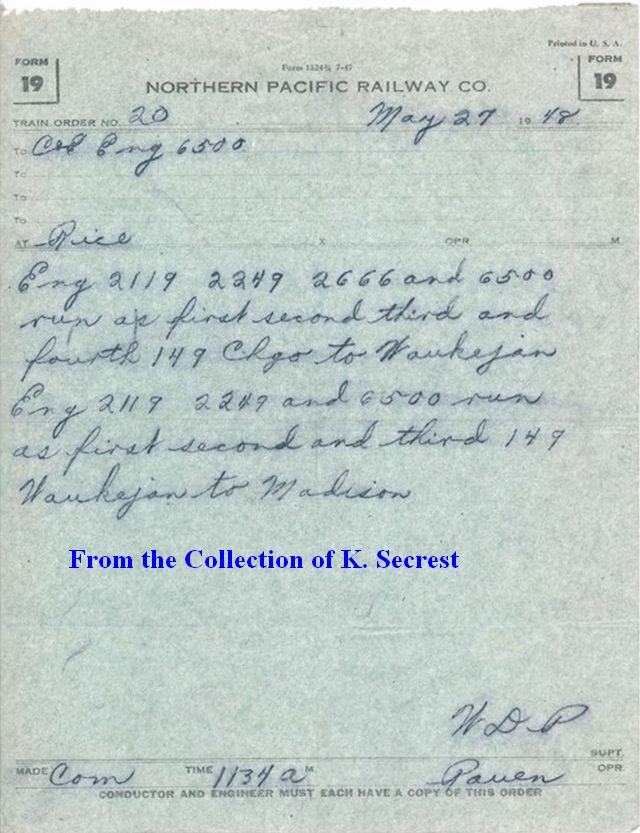 Printed in U. S. A.
FORM 19
Form 1324¾ 7-47
FORM 19
NORTHERN PACIFIC RAILWAY CO.
TRAIN ORDER NO. 20 May 27 1948
To C&E Eng 6500
To
To
To
AT Rice X OPR. M
Eng 2119 2249 2666 and 6500
run as first second third and
fourth 149 Chgo to Waukejan
Eng 2119 2249 and 6500 run
as first second and third 149
Waukejan to Madison
From the Collection of K. Secrest
W D P
SUPT.
MADE Com TIME 1134 a M. Pauen OPR.
CONDUCTOR AND ENGINEER MUST EACH HAVE A COPY OF THIS ORDER